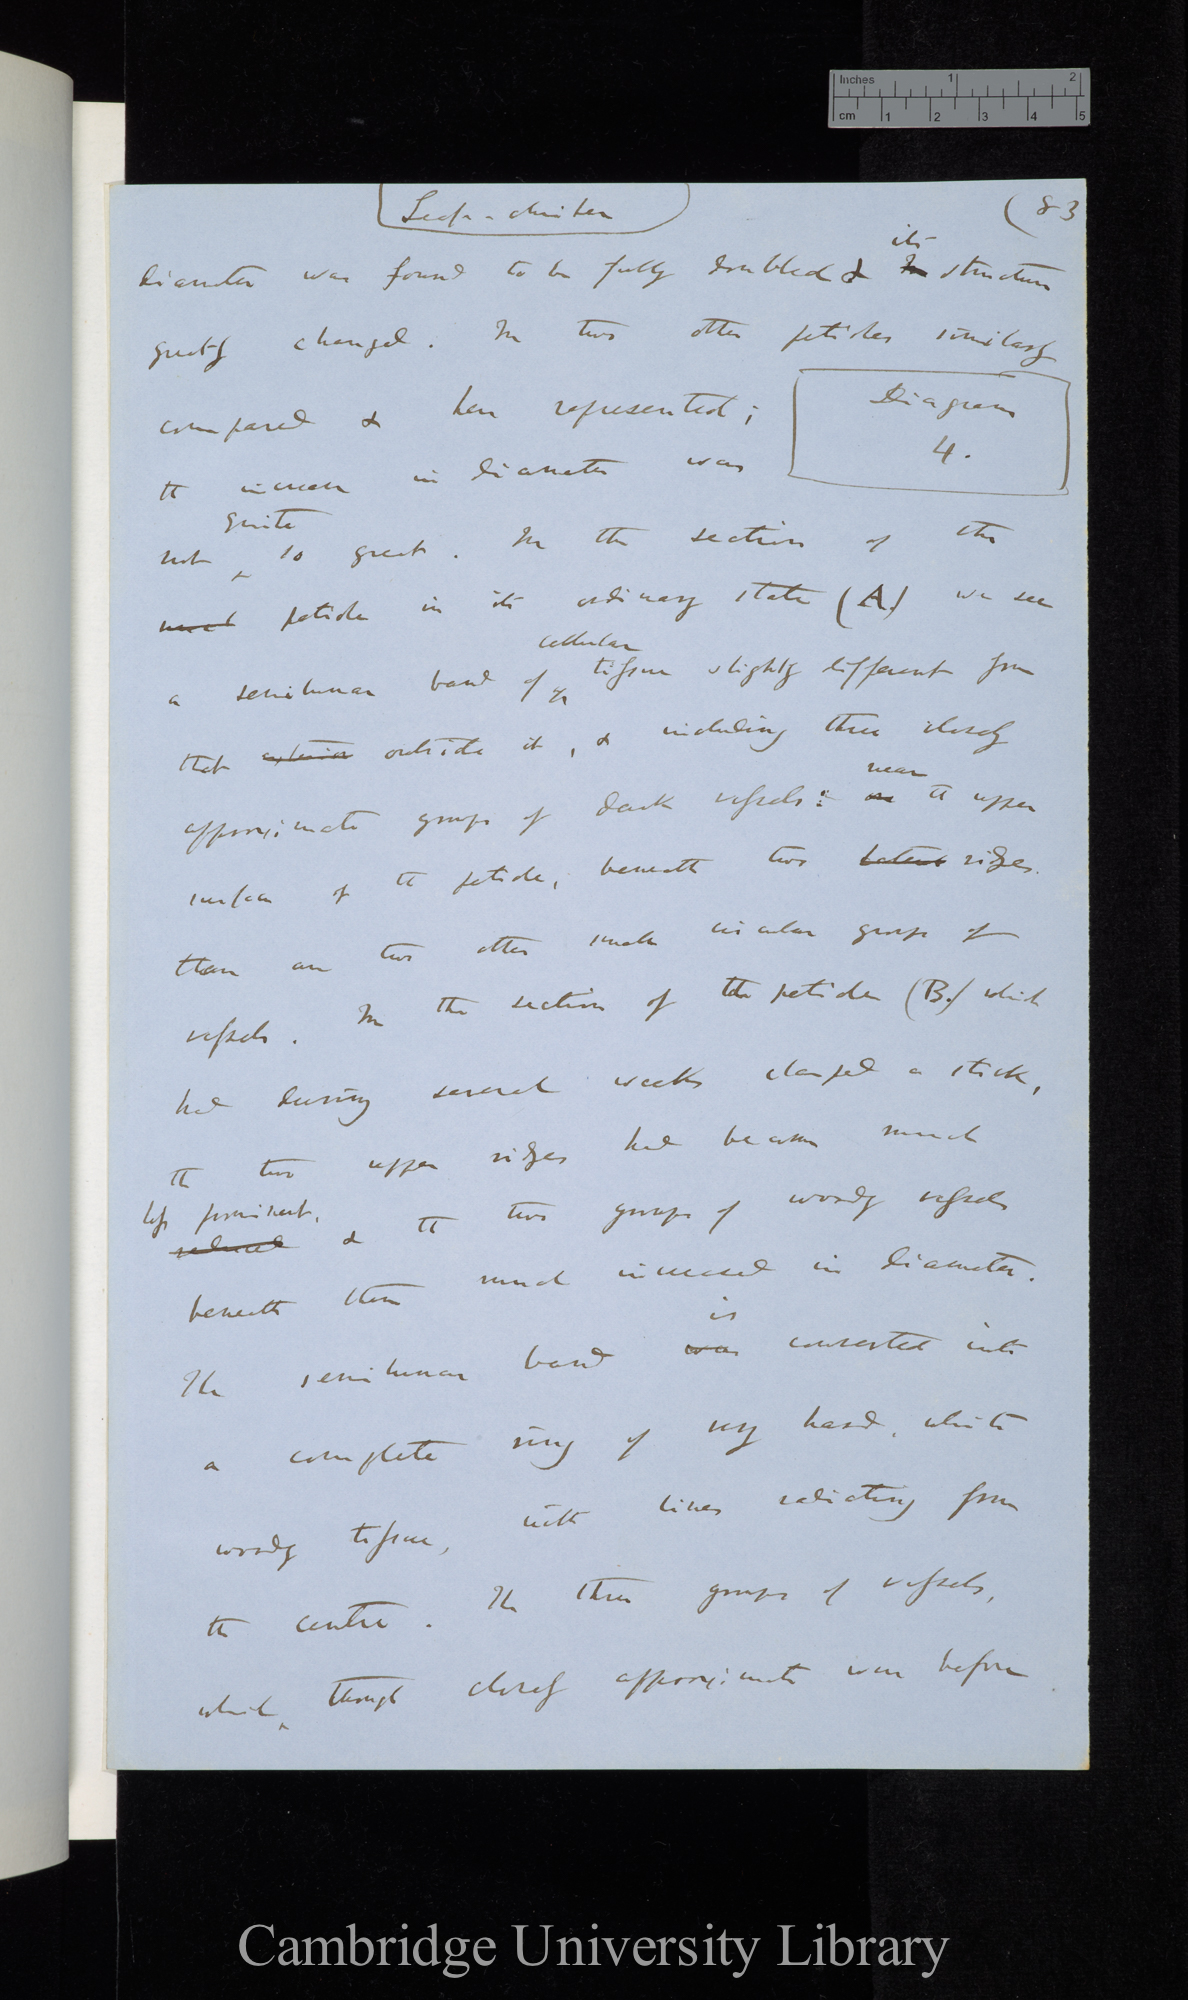 Inches 1 2
cm 1 2 3 4 5
Leaf-climber
(83
its
diameter was found to be fully doubled & structure
greatly changed. In two other petioles similarly
compared & here represented;
Diagram
4.
the increase in diameter was
quite
not so great. In the section of the
petiole in its ordinary state (A.) we see
cellular
a semilunar band of tissue slightly different from
that exterior outside it, & including three closely
near
approximate groups of dark vessels: the upper
surface of the petiole, beneath two lateral ridges.
there are two other small circular groups of
vessels. In the section of the petiole (B.) which
had during several weeks clasped a stick,
the two upper ridges had become much
less prominent,
reduced & the two groups of woody vessels
beneath them much increased in diameter.
is
The semilunar band was converted into
a complete ring of very hard, white
woody tissue, with lines radiating from
the centre. The three groups of vessels,
which, though closely approximate were before
Cambridge University Library